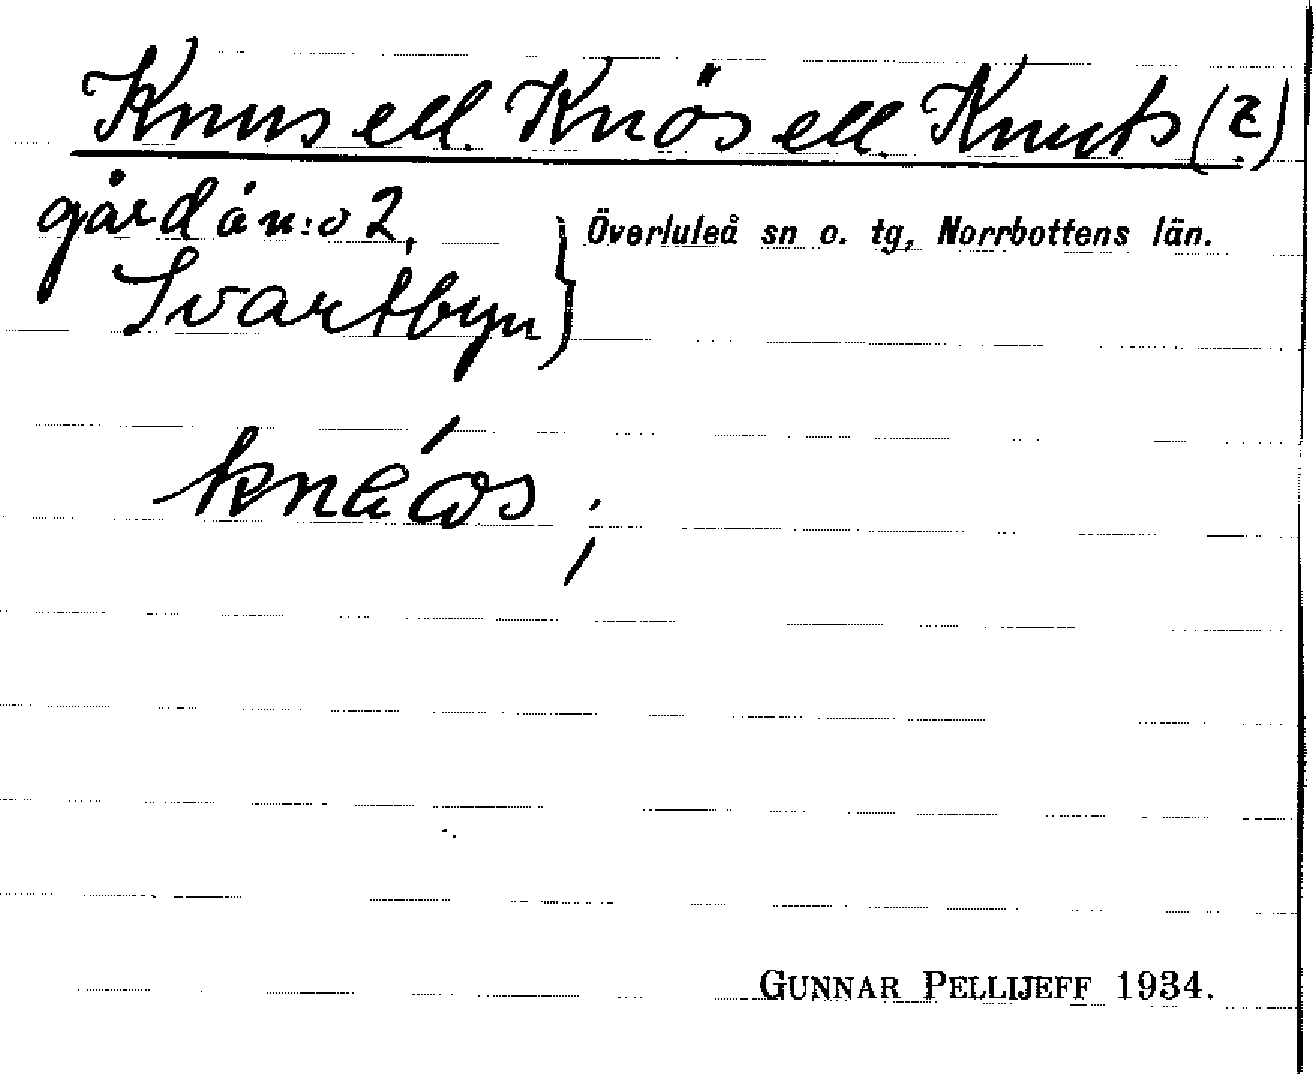 Knus ell. Knös ell. Knuts (?)
gård å n:o 2,
Svartbyn } Överluleå sn o. tg, Norrbottens län.
GUNNAR PELLIJEFF 1934.